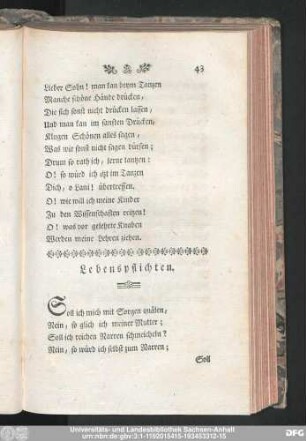 43
Lieber Sohn! man kan beym Tanzen
Manche schöne Hände drücken,
Die sich sonst nicht drücken lassen,
Und man kan im sanften Drücken,
Klugen Schönen alles sagen,
Was wir sonst nicht sagen dürfen;
Drum so rath ich, lerne tantzen:
O! so würd ich itzt im Tanzen
Dich, o Lani! übertreffen.
O! wie will ich meine Kinder
Zu den Wissenschaften reitzen!
O! was vor gelehrte Knaben
Werden meine Lehren ziehen.
Lebenspflichten.
Soll ich mich mit Sorgen quälen,
Nein, so glich ich meiner Mutter;
Soll ich reichen Narren schmeicheln?
Nein, so würd ich selbst zum Narren;
Soll
Universitäts- und Landesbibliothek Sachsen-Anhalt
urn:nbn:de:gbv:3:1-1192015415-193453312-15
DFG